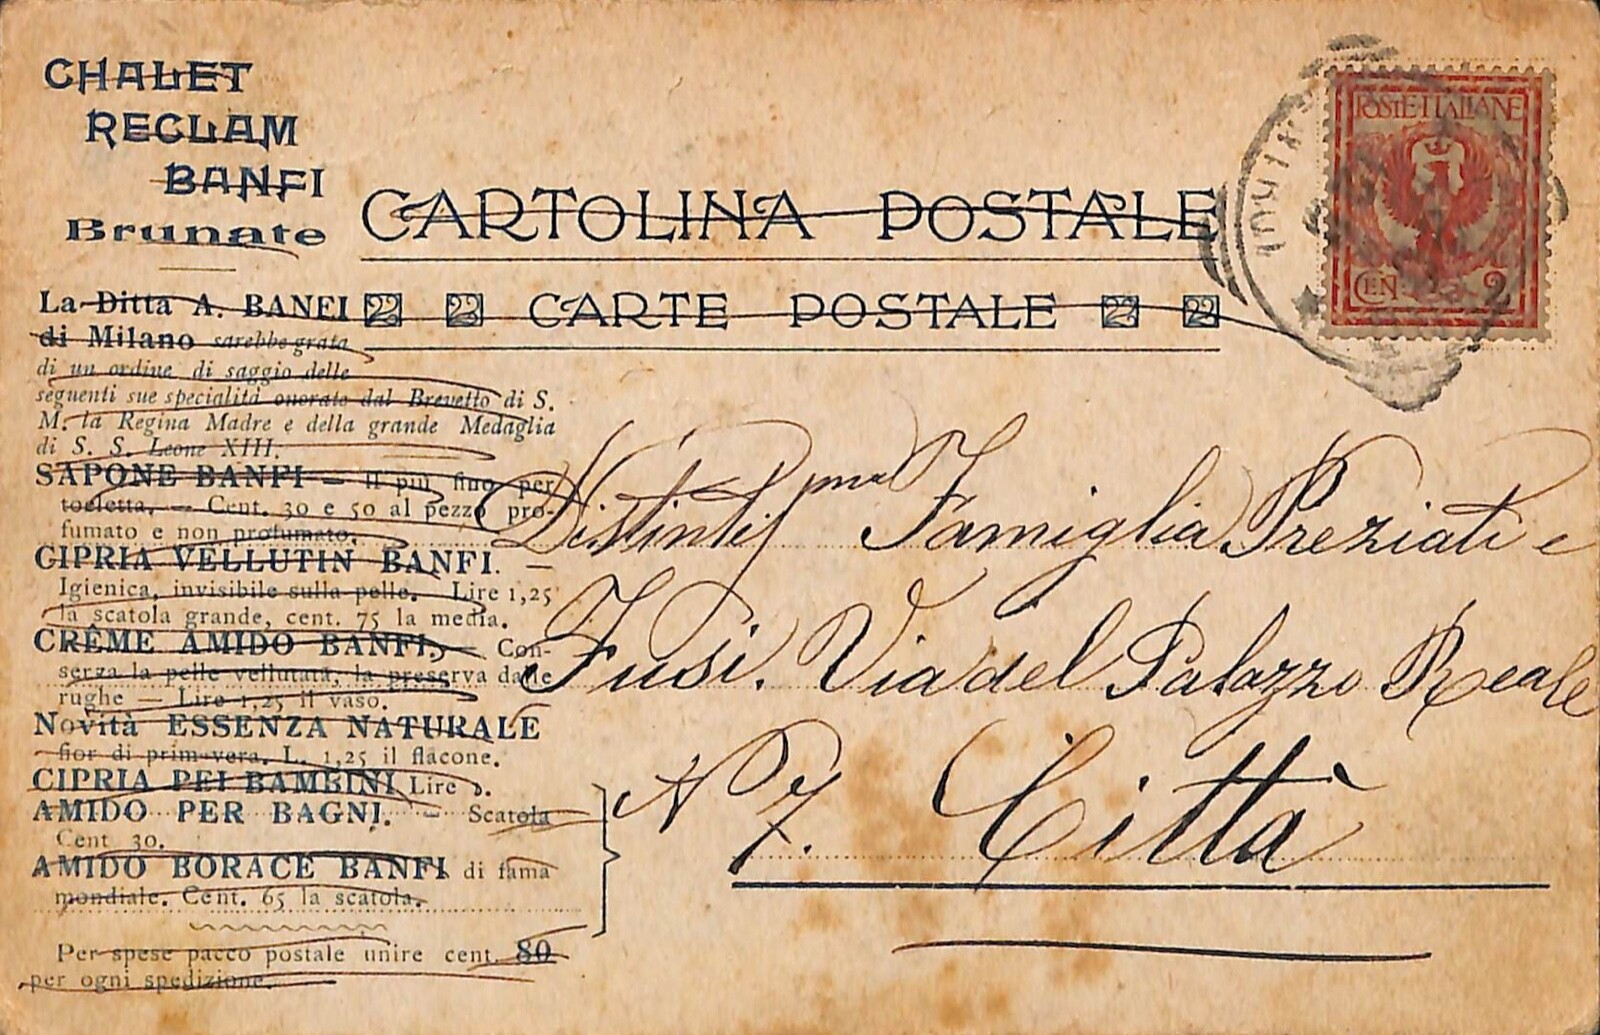 CHALET
RECLAM
BANFI
Brunate
CARTOLINA POSTALE
CARTE POSTALE
POSTE ITALIANE
CEN. 2
La Ditta A. BANFI
di Milano sarebbe grata
di un ordine di saggio delle
seguenti sue specialità onorate dal Brevetto di S.
M. la Regina Madre e della grande Medaglia
di S. S. Leone XIII.
SAPONE BANFI — Il più fino per
toeletta. — Cent. 30 e 50 al pezzo pro-
fumato e non profumato.
CIPRIA VELLUTIN BANFI. —
Igienica, invisibile sulla pelle. Lire 1,25
la scatola grande, cent. 75 la media.
CRÊME AMIDO BANFI. — Con-
serza la pelle vellutata, la preserva dalle
rughe — Lire 1,25 il vaso.
Novità ESSENZA NATURALE
fior di primavera. L. 1,25 il flacone.
CIPRIA PEI BAMBINI Lire 1.
AMIDO PER BAGNI. — Scatola
Cent 30.
AMIDO BORACE BANFI di fama
mondiale. Cent. 65 la scatola.
Per spese pacco postale unire cent. 80
per ogni spedizione.
Distintissma Famiglia Preziati e
Fusi. Via del Palazzo Reale
N 7. Città